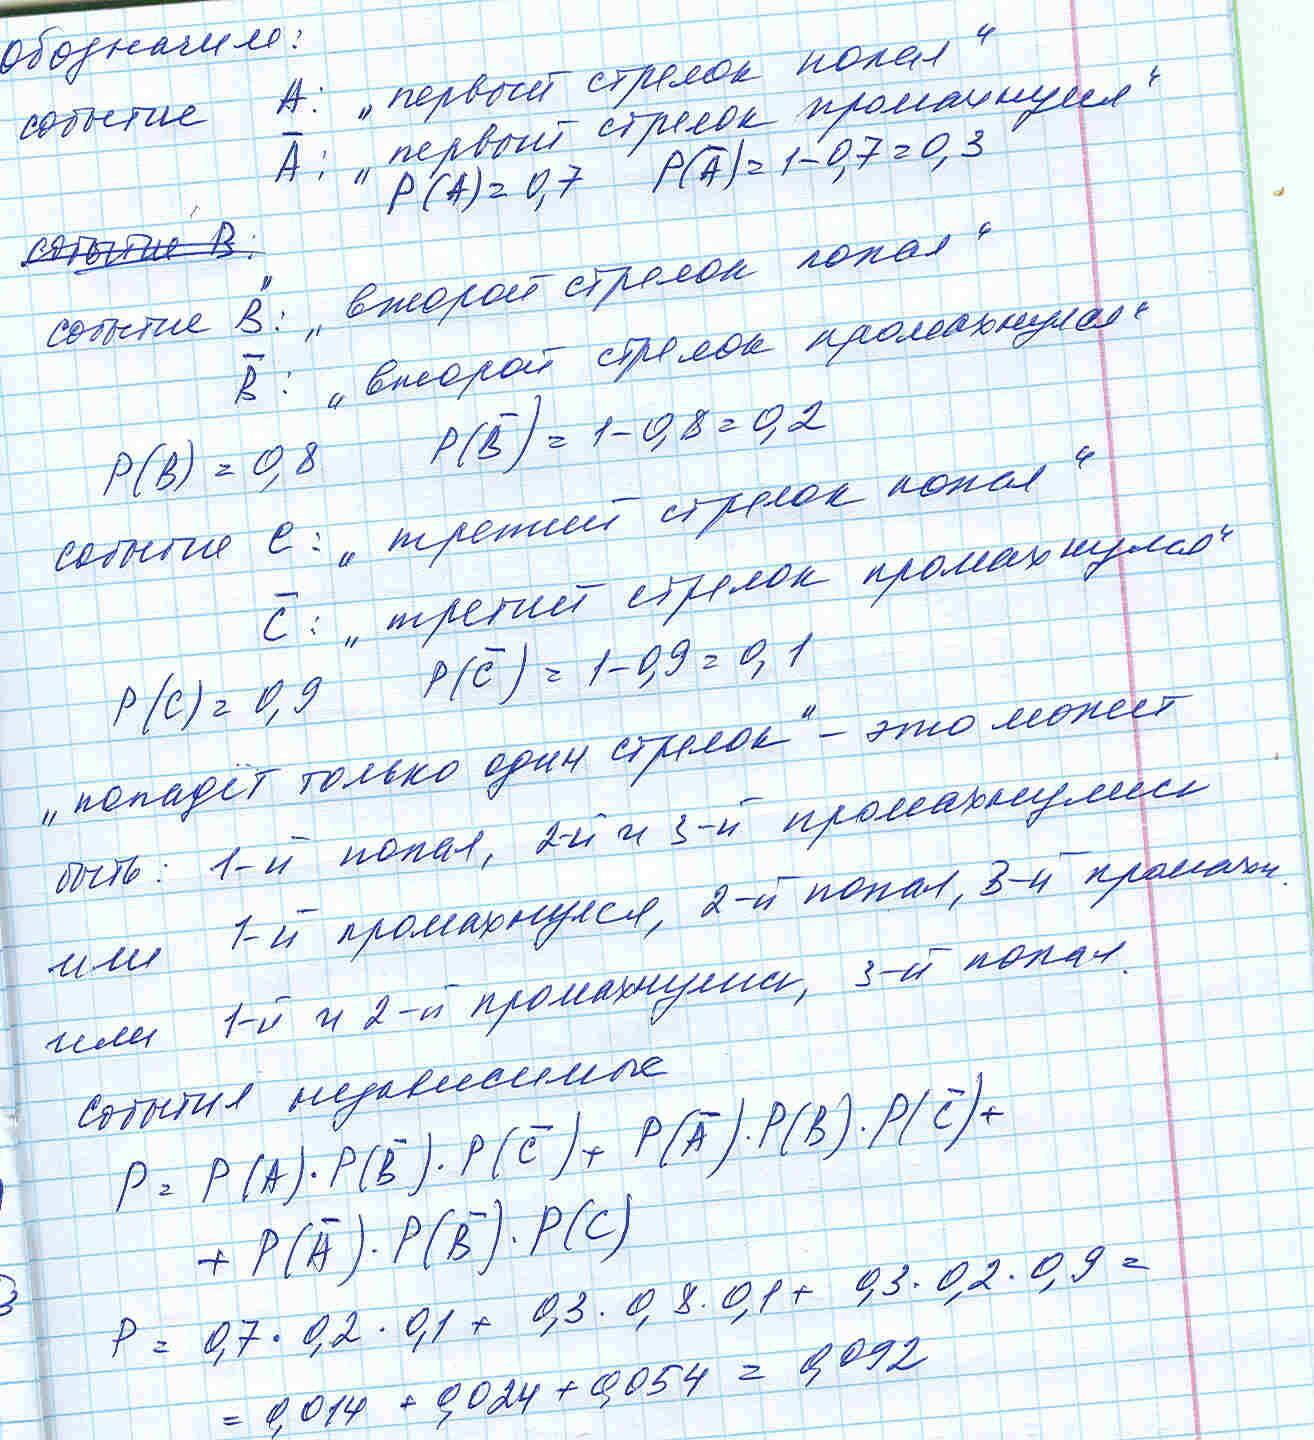 Обозначим:
событие A: „первый стрелок попал“
A̅: „первый стрелок промахнулся“
P(A) = 0,7 P(A̅) = 1 - 0,7 = 0,3
событие B:
событие B: „второй стрелок попал“
B̅: „второй стрелок промахнулся“
P(B) = 0,8 P(B̅) = 1 - 0,8 = 0,2
событие C: „третий стрелок попал“
C̅: „третий стрелок промахнулся“
P(C) = 0,9 P(C̅) = 1 - 0,9 = 0,1
„попадёт только один стрелок“ - это может
быть: 1-й попал, 2-й и 3-й промахнулись
или 1-й промахнулся, 2-й попал, 3-й промахн.
или 1-й и 2-й промахнулись, 3-й попал.
События независимые
P = P(A)·P(B̅)·P(C̅) + P(A̅)·P(B)·P(C̅) +
+ P(A̅)·P(B̅)·P(C)
P = 0,7·0,2·0,1 + 0,3·0,8·0,1 + 0,3·0,2·0,9 =
= 0,014 + 0,024 + 0,054 = 0,092